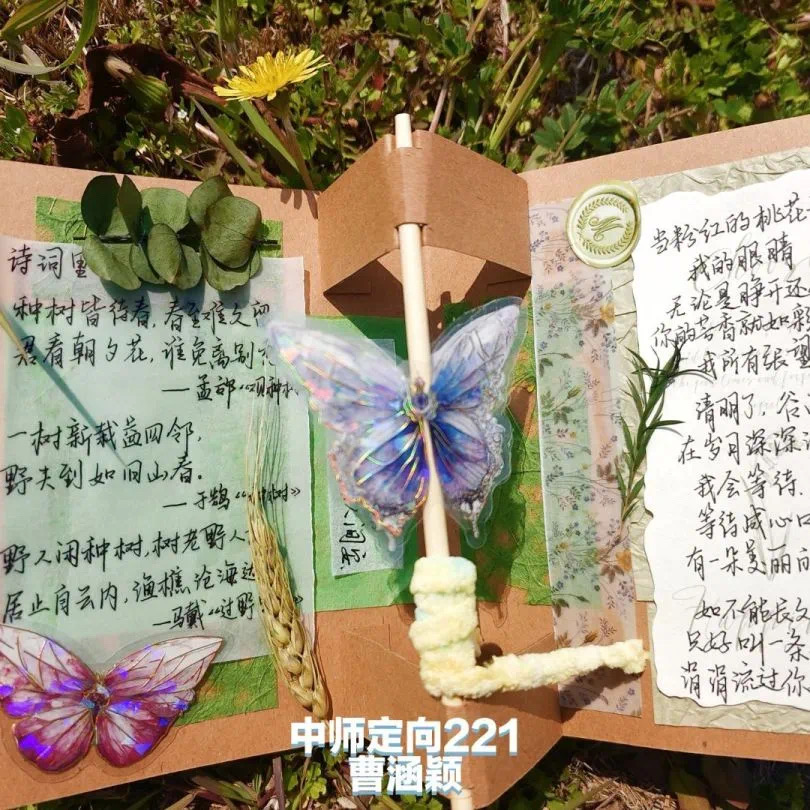 诗词里
种树皆待春，春至难久留
君看朝夕花，谁免离别
—孟郊
一树新栽益四邻，
野夫如到旧山春。
—于鹄
野人闲种树，树老野人
居止白云内，渔樵沧海边
—马戴《过野
人间
当粉红的桃花
我的眼睛
无论是睁开还
你的芳香就如
我所有张望
清明了，谷
在岁月深深
我会等待
等待成心
有一朵美丽的
如不能长久
只好叫一条
涓涓流过你
中师定向221
曹涵颖